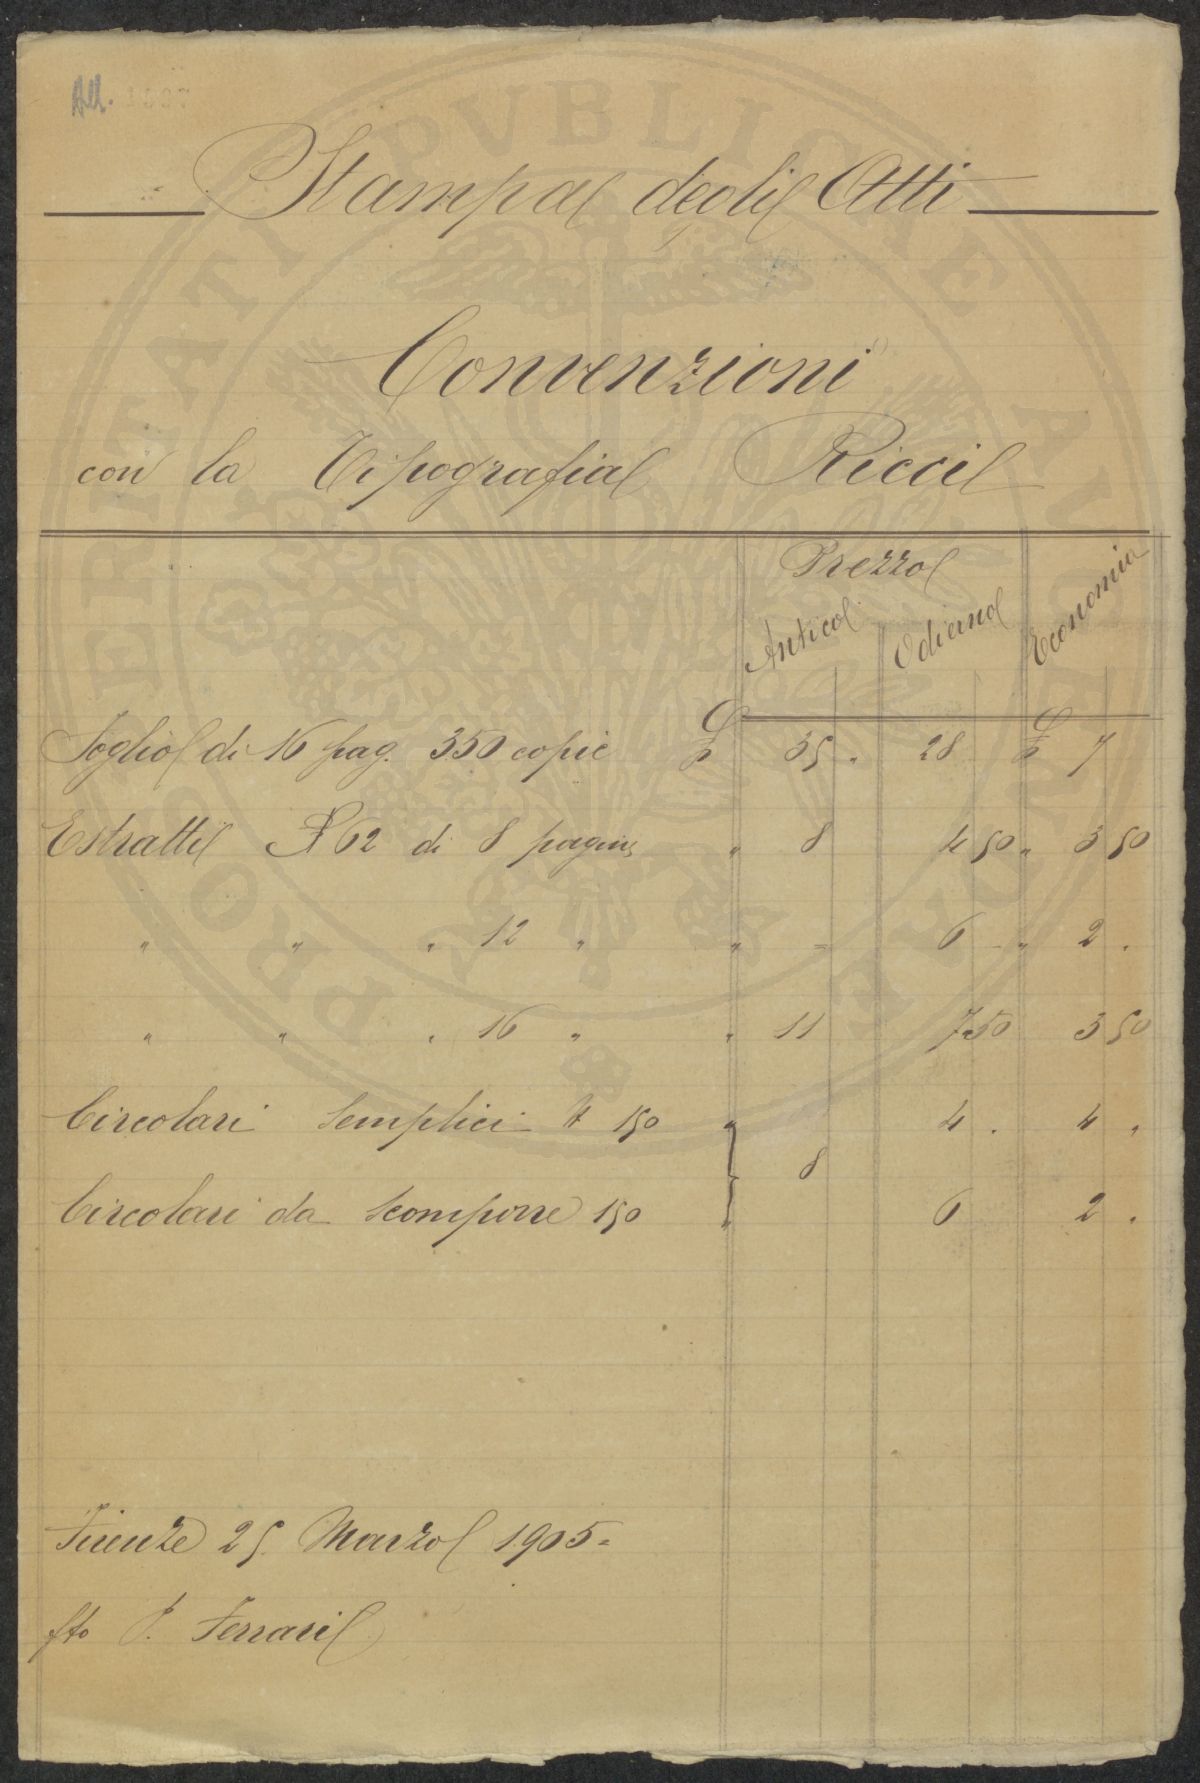 All. 1007
Stampa degli Atti
Convenzioni
con la Tipografia Ricci
Prezzo
Antico Odierno Economia
Foglio di 16 pag. 350 copie £ 35 . 28 £ 7
Estratti N 62 di 8 pagine " 8 4 50 " 3 50
" " " 12 " " = 6 " 2 .
" " " 16 " " 11 7 50 3 50
Circolari semplici N 150 " 4 . 4 "
8
Circolari da scomporre 150 " 6 2 .
Firenze 25 Marzo 1905=
fto P. Ferrari
PROSPERITATI PVBLICAE AVGENDAE